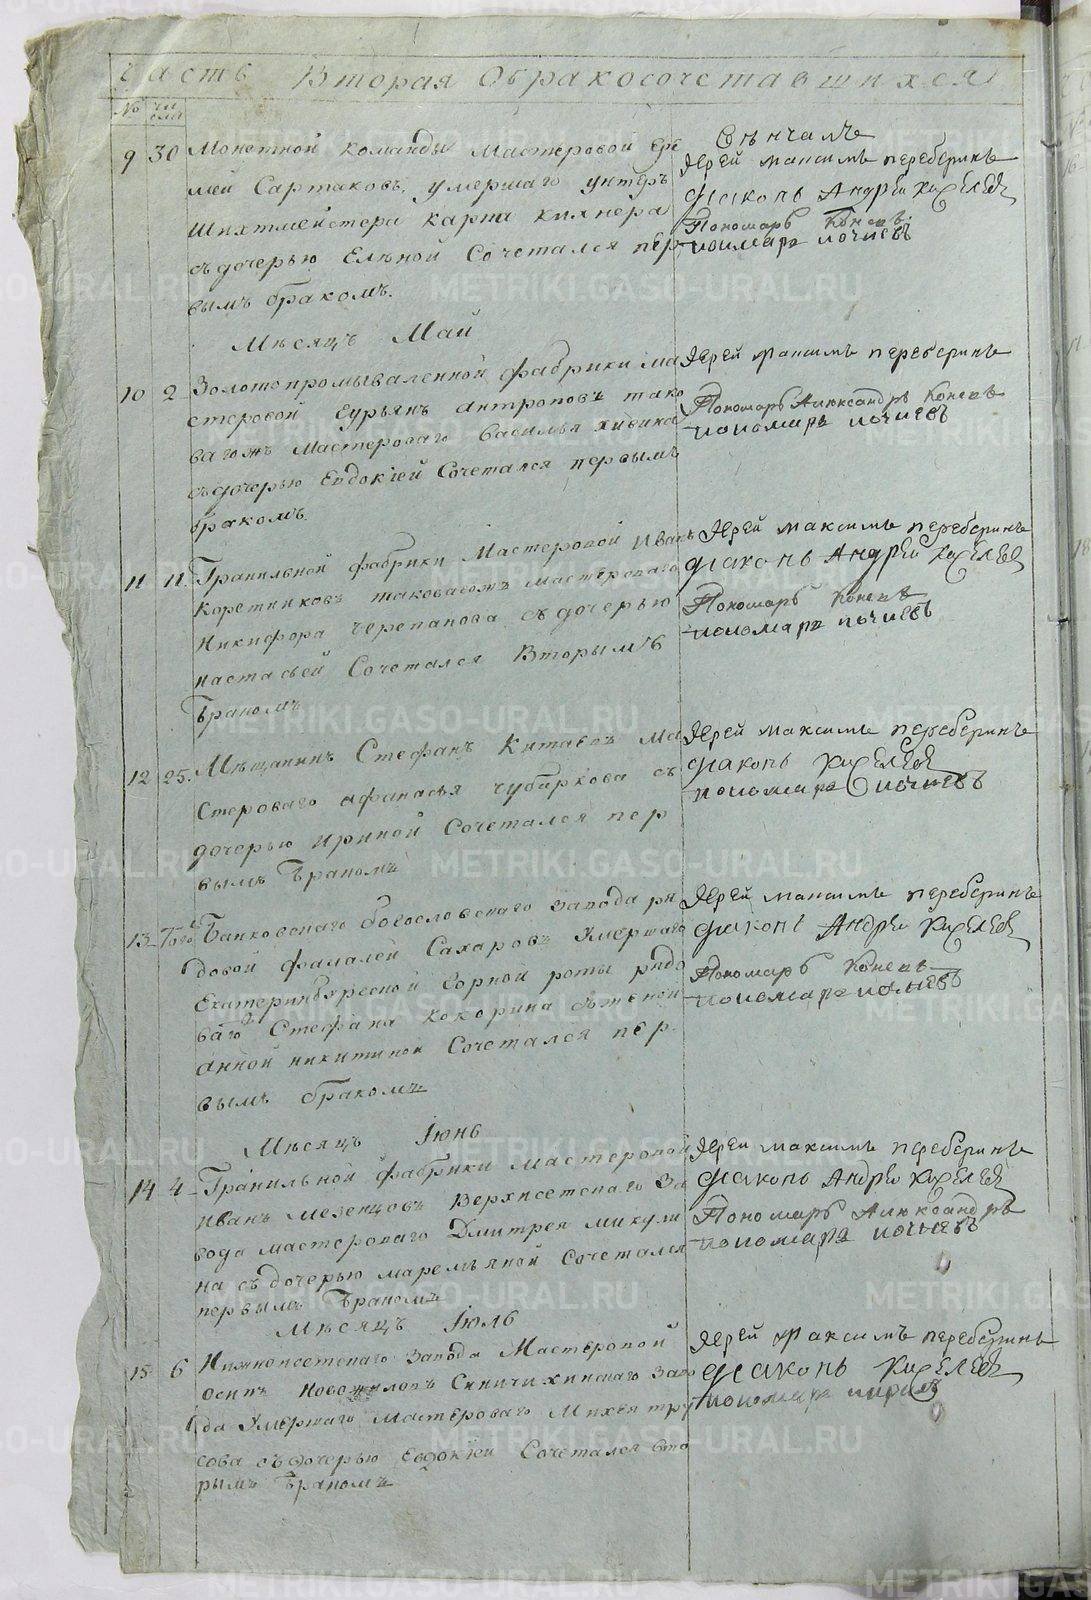 Часть Вторая Обракосочетавшихся
№ числа
9 30 Монетной команды Мастеровой Ере
мей Сартаковъ, умершаго унтеръ
Шихтмейстера карпа
съ дочерью Еленой Сочетался пер
вымъ бракомъ.
Венчалъ
Иерей Максимъ переберинъ
диаконъ Андрей
Пономарь Коневъ
пономарь
Мѣсяцъ Май
10 2 Золотопромываленной фабрики ма
стеровой Гурьянъ антроповъ тако
вагожъ Мастероваго Василья
съ дочерью Евдокіей Сочетался первымъ
бракомъ
Иерей Максимъ переберинъ
Пономарь Александръ Коневъ
пономарь
11 11. Гранильной фабрики Мастеровой Иванъ
Коретниковъ таковагожъ мастероваго
Никифора черепанова съ дочерью
настасьей Сочетался Вторымъ
бракомъ
Иерей Максимъ переберинъ
диаконъ Андрей
Пономарь Коневъ
пономарь
12 25. Мѣщанинъ Стефанъ Китаевъ ма
Стероваго афанасья чубаркова съ
дочерью Ириной Сочетался пер
вымъ бракомъ
Иерей Максимъ переберинъ
диаконъ
пономарь
13 Того Банковскаго богословскаго завода ря
довой фалалей Сахаровъ Умершаго
Екатеринбургской Горной роты рядо
ваго Стефана Кокорина съ женой
анной никитиной Сочетался пер
вымъ бракомъ
Иерей Максимъ переберинъ
диаконъ Андрей
Пономарь Коневъ
пономарь
Мѣсяцъ Iюнь
14 4 Гранильной фабрики Мастеровой
Иванъ Мезенцовъ Верхисетскаго За
вода мастероваго Дмитрея микули
на съ дочерью маремьяной Сочетался
первымъ бракомъ
Иерей Максимъ переберинъ
диаконъ Андрей
Пономарь Александръ
пономарь
Мѣсяцъ Iюль
15 6 Нижнеисетскаго завода Мастеровой
осипъ Новожиловъ Синячихинскаго Заво
да Умершаго Мастероваго Михея тру
сова съ дочерью Евдокіей Сочетался вто
рымъ бракомъ
Иерей Максимъ переберинъ
диаконъ
пономарь
METRIKI.GASO-URAL.RU